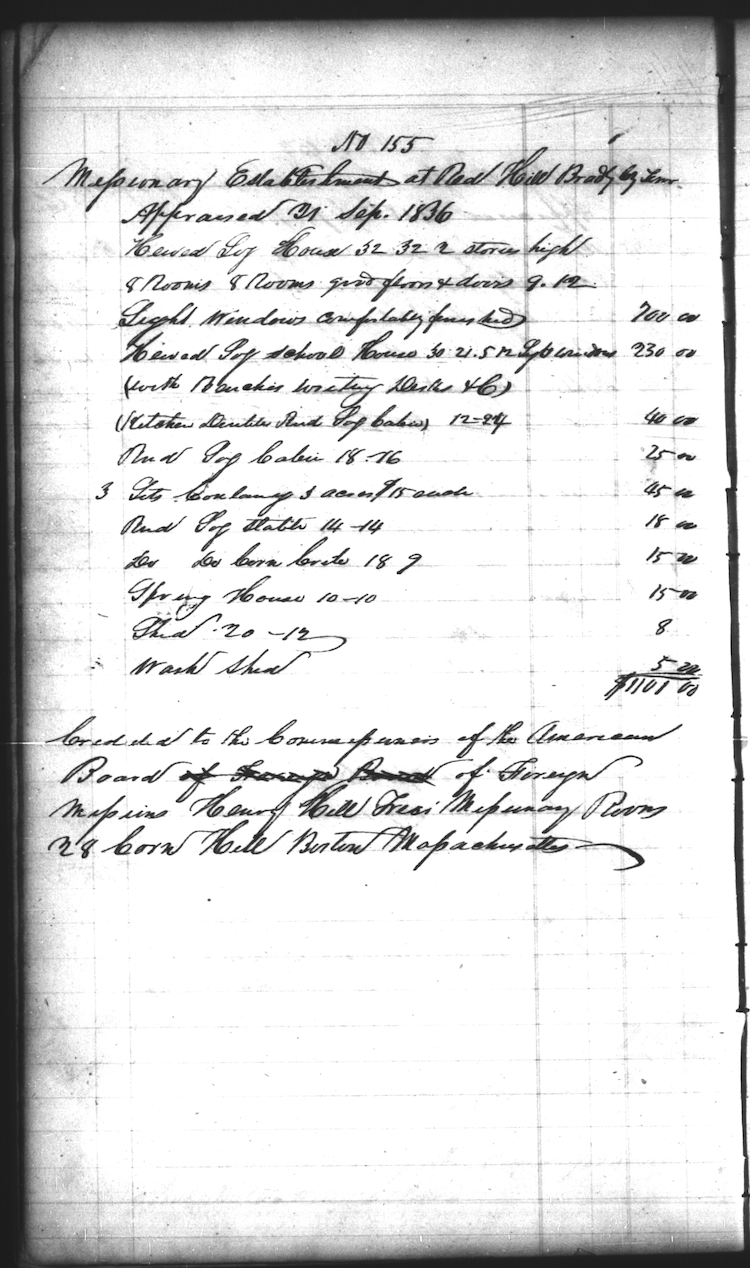 No 155
Missionary Establishment at Red Hill Brady by Tenn.
Appraised 21 Sep. 1836
Hewed Log House 32 32 2 stories high
8 Rooms 8 Rooms good floors & doors 9. 12
Light Windows comfortably finished 700 00
Hewed Log School House 30. 21. 5 12 Lgt windows 230 00
(with Benches writing Desks &C)
(Kitchen Double Rnd Log Cabin) 12-24 40 00
Rnd Log Cabin 18-16 25 00
3 Lots 3 acres $15 each 45 00
Rnd Log Stable 14-14 18 00
Do Do Corn Crib 18 9 15 00
Spring House 10-10 15 00
Shed 20-12 8
Wash Shed 5 00
$1101 00
to the Commissioners of the American
Board of Foreign Board of Foreign
Missions Henry Hill Missionary Rooms
28 Corn Hill Boston Massachusetts